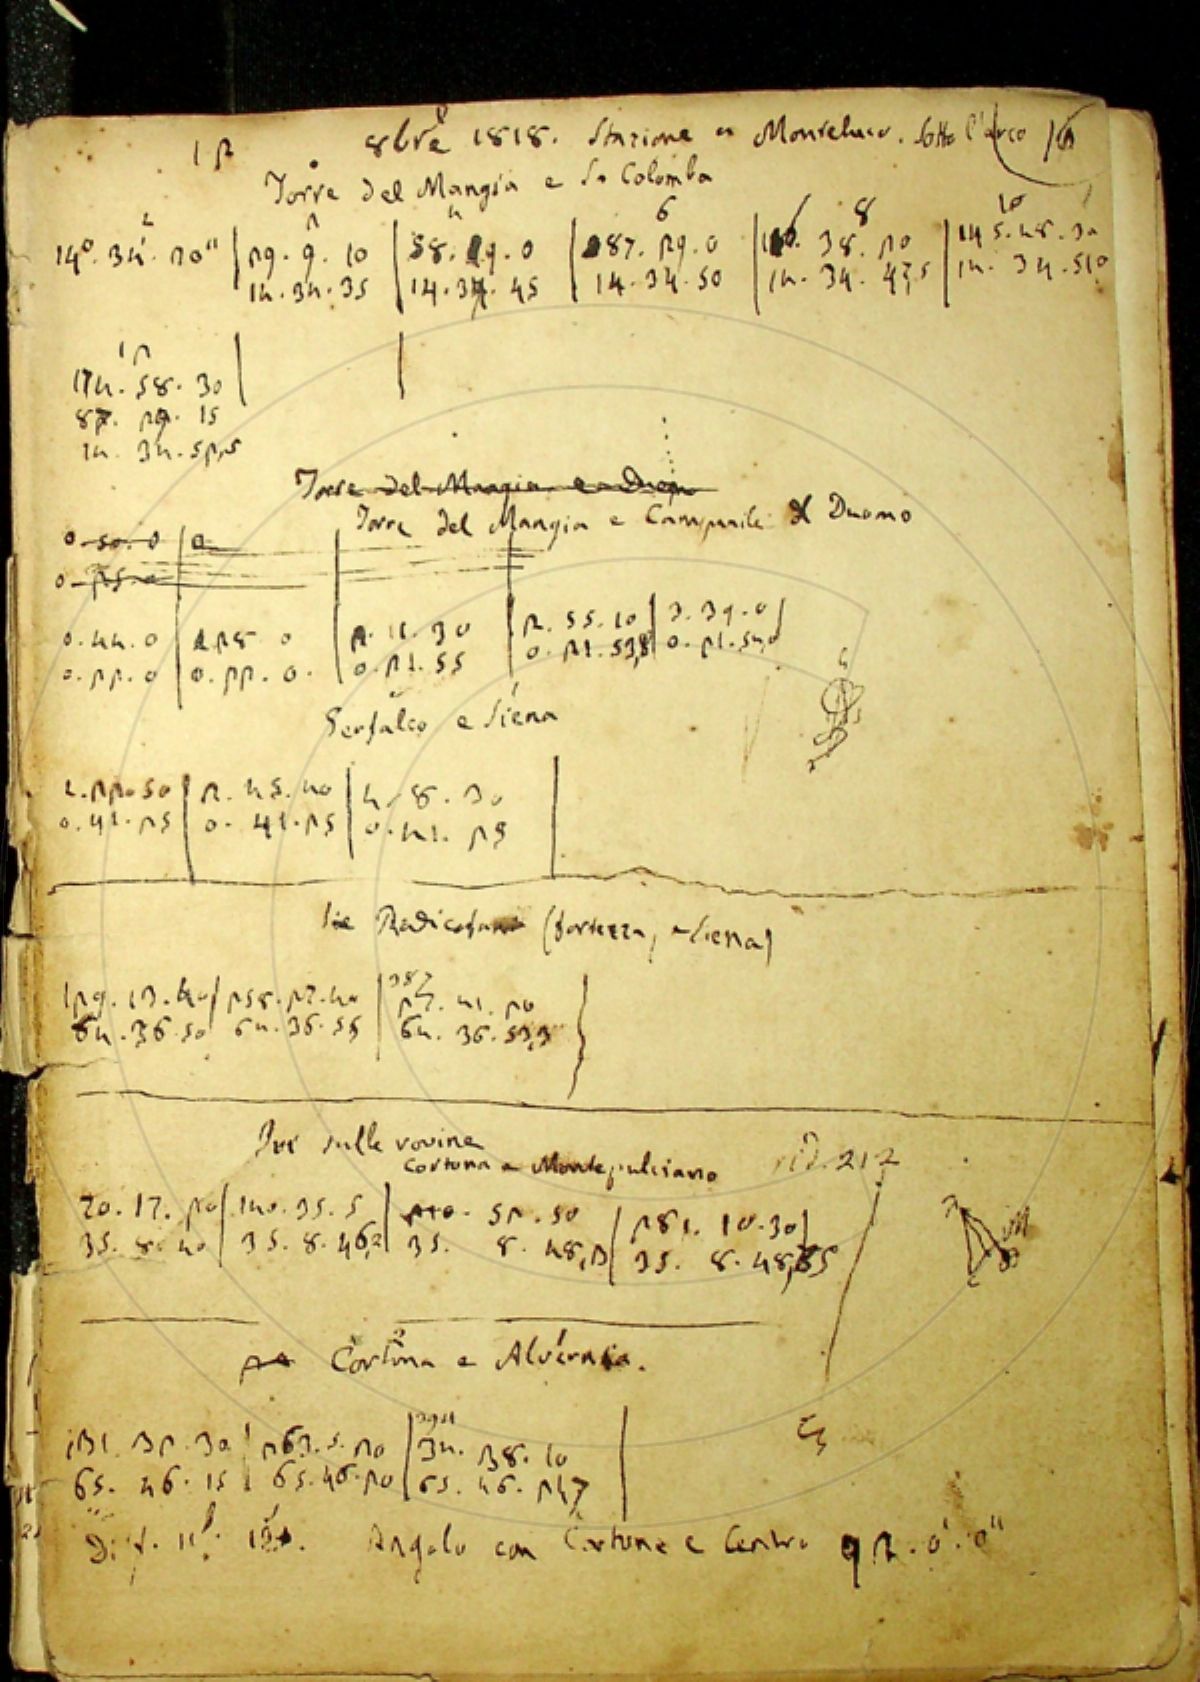 12 8bre 1818. Stazione a Monteluco. Sotto l'arco
Torre del Mangia e Sa Colomba
2 4 6 8 10
14°. 34'. 20" 29. 9. 10 58. 19. 0 87. 29. 0 38. 20 145. 48. 30
14. 34. 35 14. 34. 45 14. 34. 50 14. 34. 47,5 14. 34. 51,0
12
174. 58. 30
87. 29. 15
14. 34. 52,5
Torre del Mangia e Duomo
Torre del Mangia e Campanile Duomo
0. 50. 0 0
0. 25. 0
0. 44. 0 1. 28. 0 2. 11. 30 2. 55. 10 3. 39. 0
0. 22. 0 0. 22. 0. 0. 21. 55 0. 21. 53,8 0. 21. 54,0
Gerfalco e Siena
1. 22. 50 2. 45. 40 4. 8. 30
0. 41. 25 0. 41. 25 0. 41. 25
Radicofani (fortezza, e Siena)
387
129. 13. 40 258. 27. 40 27. 41. 20
64. 36. 50 64. 36. 55 64. 36. 53,3
Ivi sulle rovine
Cortona e Montepulciano 212
70. 17. 20 140. 35. 5 210. 52. 50 281. 10. 30
35. 8. 40 35. 8. 46,2 35. 8. 48,3 35. 8. 48,75
Cortona e Alvernia.
394
131. 32. 30 263. 5. 20 34. 38. 10
65. 46. 15 65. 46. 20 65. 46. 21,7
Angolo con Cortona e Centro 92. 0'. 0"